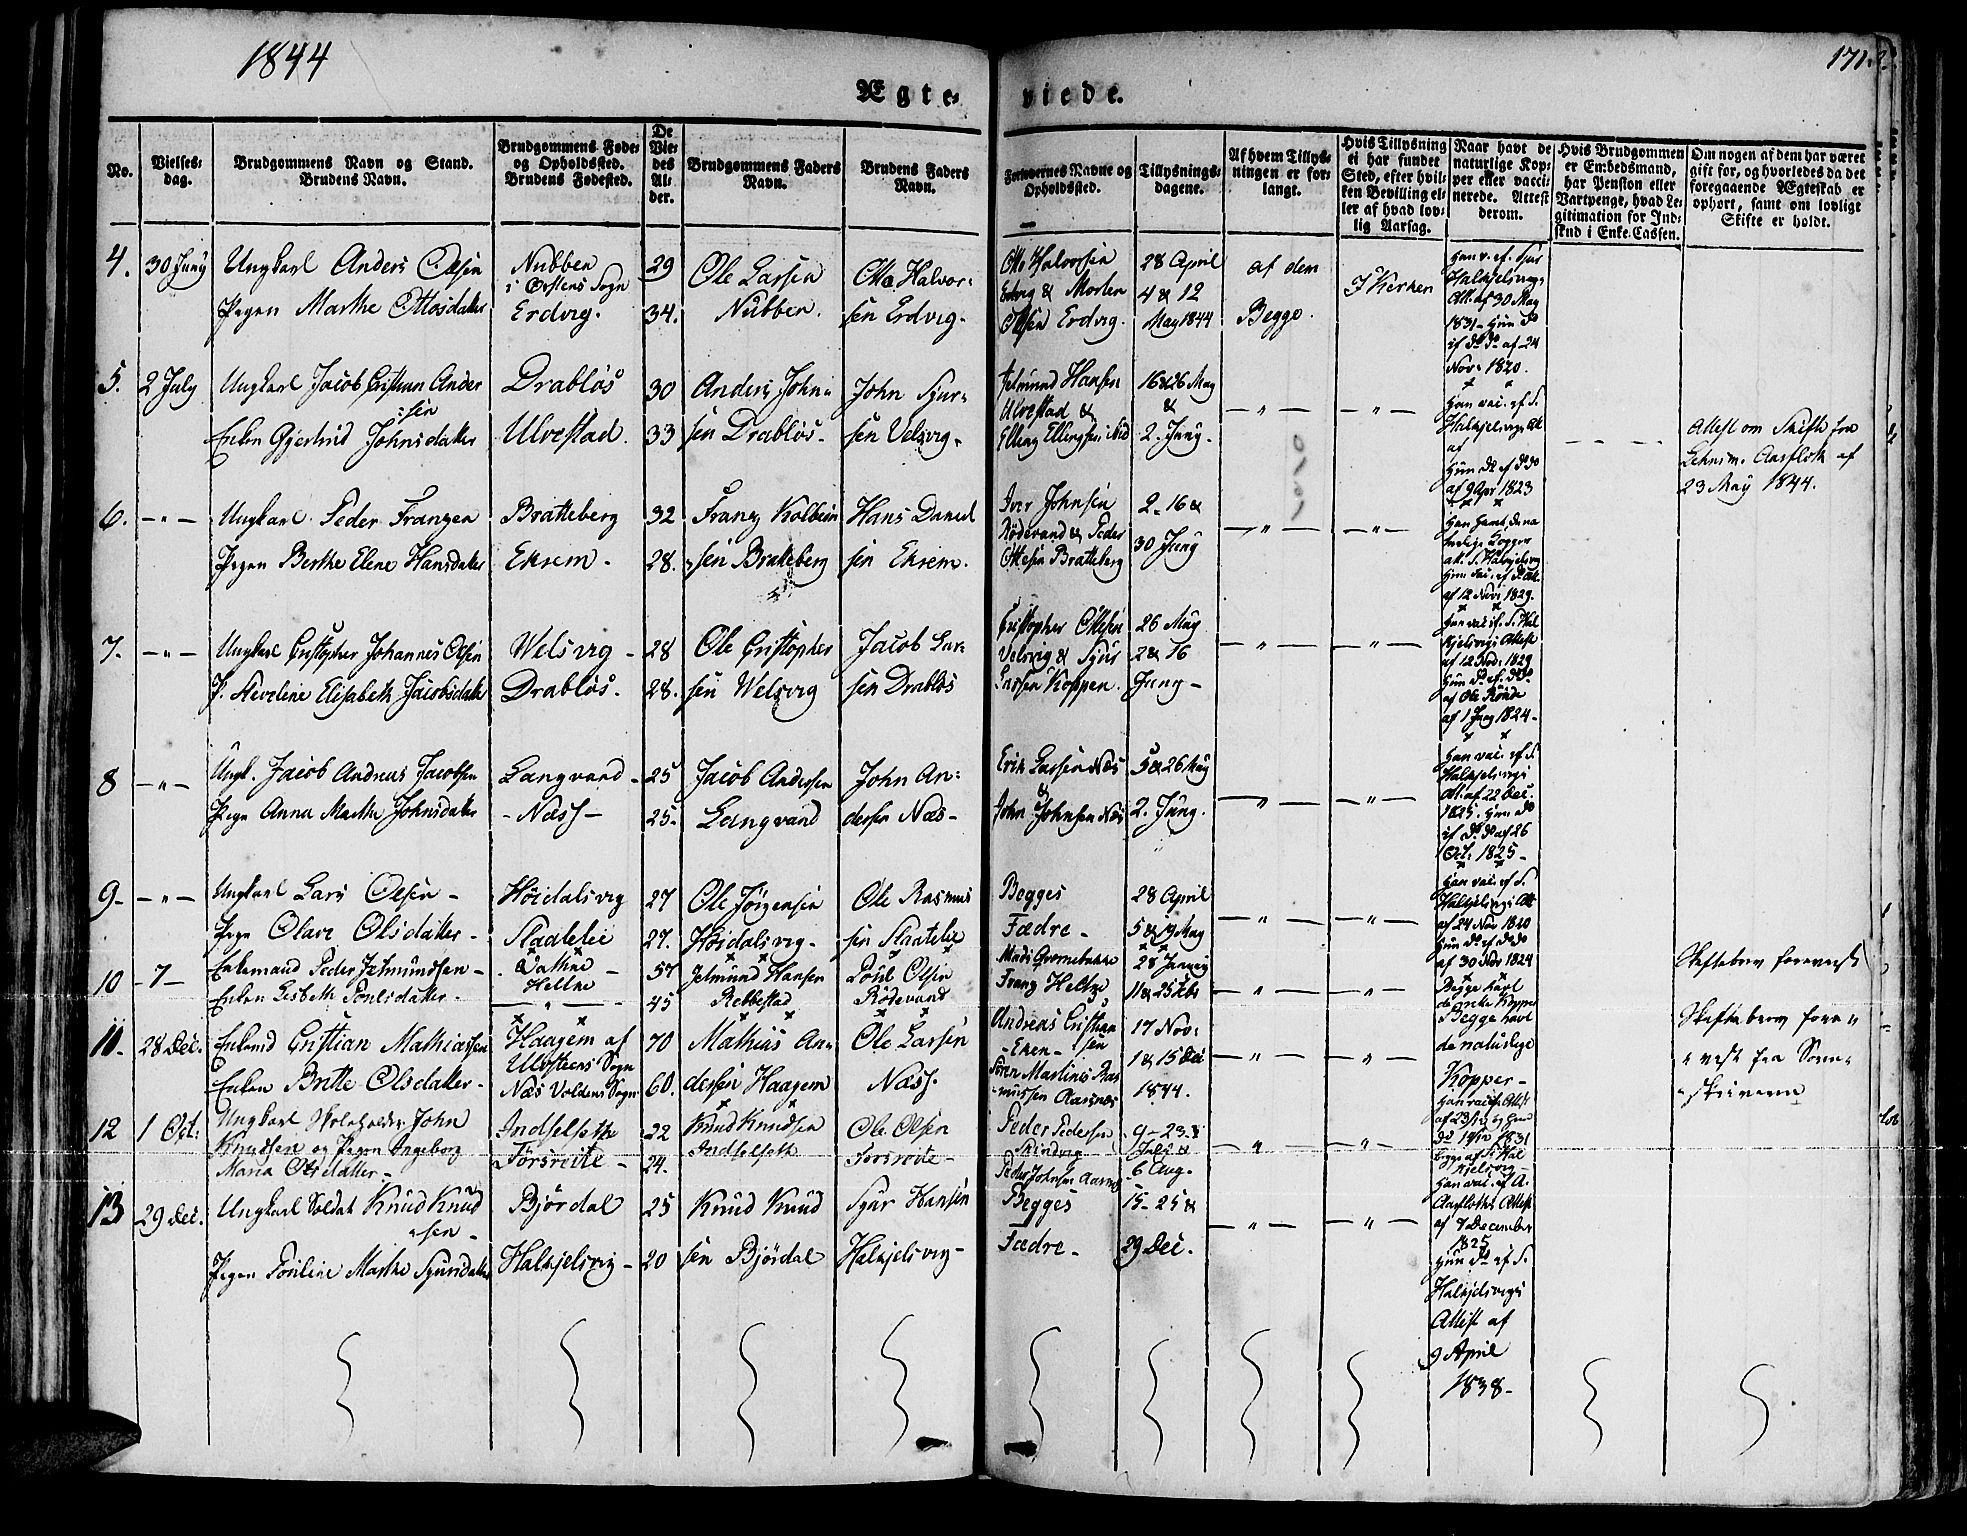 1844
171.
Ægte-
viede.
No.
Vielses-
dag.
Brudgommens Navn og Stand.
Brudens Navn.
Brudgommens Føde-
og Opholdssted.
Brudens Fødested.
De
Vie-
des
Al-
der.
Brudgommens Faders
Navn.
Brudens Faders
Navn.
Forlovernes Navne og
Opholdssted.
Tillysnings-
dagene.
Af hvem Tillys-
ningen er for-
langt.
Hvis Tillysning
ei har fundet
Sted, efter hvil-
ken Bevilling el-
ler af hvad lov-
lig Aarsag.
Naar havt de
naturlige Kop-
per eller vacci-
nerede. Attest
derom.
Hvis Brudgommen
er Embedsmand,
har Pension eller
Vartpenge, hvad Le-
gitimation for Ind-
skud i Enke-Cassen.
Om nogen af dem har været
gift før, og hvorledes da det
foregaaende Ægteskab er
ophørt, samt om lovligt
Skifte er holdt.
4.
30 Juny
Ungkarl Anders Olsen
Pigen Marthe Ottosdatter
Nubben
i Ørstens Sogn
Erdvig.
29
34.
Ole Larsen
Nubben.
Otto Halvor-
sen Erdvig.
Otto Halvorsen
Erdvig & Morten
Erdvig.
28 April
4 & 12
May 1844
af dem
Begge.
I Kirken
Halkjelsvigs
Att. af 30 May
1831 - Hun do
af do do af 24
Nov. 1820.
5.
2 July
Ungkarl Jacob Cristian Ander
-sen
Enken Gjertrud Johnsdatter
Drabløs
Ulvestad.
30
33
Anders John-
sen Drabløs.
John Sjur-
sen Velsvig.
Jetmund Hansen
Ulvestad &
16 & 26 May
&
2. Juny.
— " —
— " —
Han vac. af S.
Halkjelsvigs Att
af
Hun do af do do
af 9 Apr 1823
Attest om Skifte fra
Lehnsm. Aarflots af
23 May 1844.
6.
— " —
Ungkarl. Peder Franzen
Pigen Berthe Elene Hansdatter
Bratteberg
Eksem.
32
28.
Franz Kolbein
sen Bratteberg
Hans Daniel
sen Eksem.
Iver Johnsen
Rødevand & Peder
Ottesen Bratteberg
2. 16 &
30 Juny
— " —
— " —
af 12 Nov 1829.
7.
— " —
Ungkarl Cristopher Johannes Olsen
P. Severine Elisabeth Jacobsdatter
Welsvig
Drabløs.
28
28.
Ole Cristopher
sen Welsvig
Jacob Lar-
sen Drabløs
Cristopher Ottesen
Velsvig & Sjur
Larsen Koppen.
26 May
2 & 16
Juny
— " —
— " —
Han vac. af. S. Hal
kjelsvigs Attest
af 12 Nov. 1829
Hun do af. do do
af Ole Rønde
af 1 Juny 1824.
8
— " —
Ungk. Jacob Andreas Jacobsen
Pigen Anna Marthe Johnsdatter
Langvand
- Næss -
25
25.
Jacob Andersen
Langvand
John An-
dersen Næs
Erik Larsen Næs
&
John Johnsen Næs
5 & 26 May
2. Juny.
— " —
— " —
Han vac. af S.
Halkjelsvigs
Att. af 22 Dec.
1825. Hun do
af do do af 26
Oct. 1825
9.
— " —
Ungkarl Lars Olsen
Pigen Olave Olsdatter
Høidalsvig
Slaatelie
27
27.
Ole Jørgensen
Høidalsvig.
Ole Rasmus
sen Slaatelie
Begges
Fædre.
28 April
5 & 19 May
— " —
— " —
Han vac. af S.
Halkjelsvigs Att
af 24 Nov 1820
Hun do af do do
af 30 Nov 1824
10
7
Enkemand Peder Jetmundsen
Enken Lisbeth Poulsdatter
Vathne
Hellne
— " —
57
45
Jetmund Hansen
Rebbestad
Poul Olsen
Rødevand
Mads Grønnebakke
Franz Heltze
28 January
11 & 25 Febr
— " —
— " —
Begge havt
de Kopper
Skiftebrev foreviist
11.
28 Dec.
Enkemd Cristian Mathiassen
Enken Britte Olsdatter
Haagem af
Ulvsteens Sogn
Næs Voldens Sogn
70
60.
Mathias An-
dersen Haagem
Ole Larsen
Næss.
Andreas Cristian
- Eken - sen
Søren Martinus Ras
mussen Aarsnæs
17 Nov.
1 & 15 Dec
1844.
— " —
"
Begge havt
de naturlige
Kopper
Skiftebrev fore-
-vist fra Soren-
-skriveren
12
1 Oct.
Ungkarl Skoleholder John
Knudsen og Pigen Ingeborg
Maria Olsdatter
Indselseth
Førsreite
22
24.
Knud Knudsen
Indselseth
Ole Olsen
Førsreite
Peder Pedersen
Peder Johnsen Aarnes
9 - 23 &
July &
6 Aug.
— " —
— " —
13
29 Dec.
Ungkarl Soldat Knud Knud
-sen
Pigen Pouline Marthe Sjursdatter
Bjørdal
Halkjelsvig
25
20
Knud Knud
sen Bjørdal
Sjur Hansen
Halkjelsvig
Begges
Fædre.
15 - 25 &
29 Dec.
— " —
— " —
Han vac. af A.
Aarflots Attest
af 7 December
1825
Hun do af S.
Halkjelsvigs
Attest af
9 April
1838